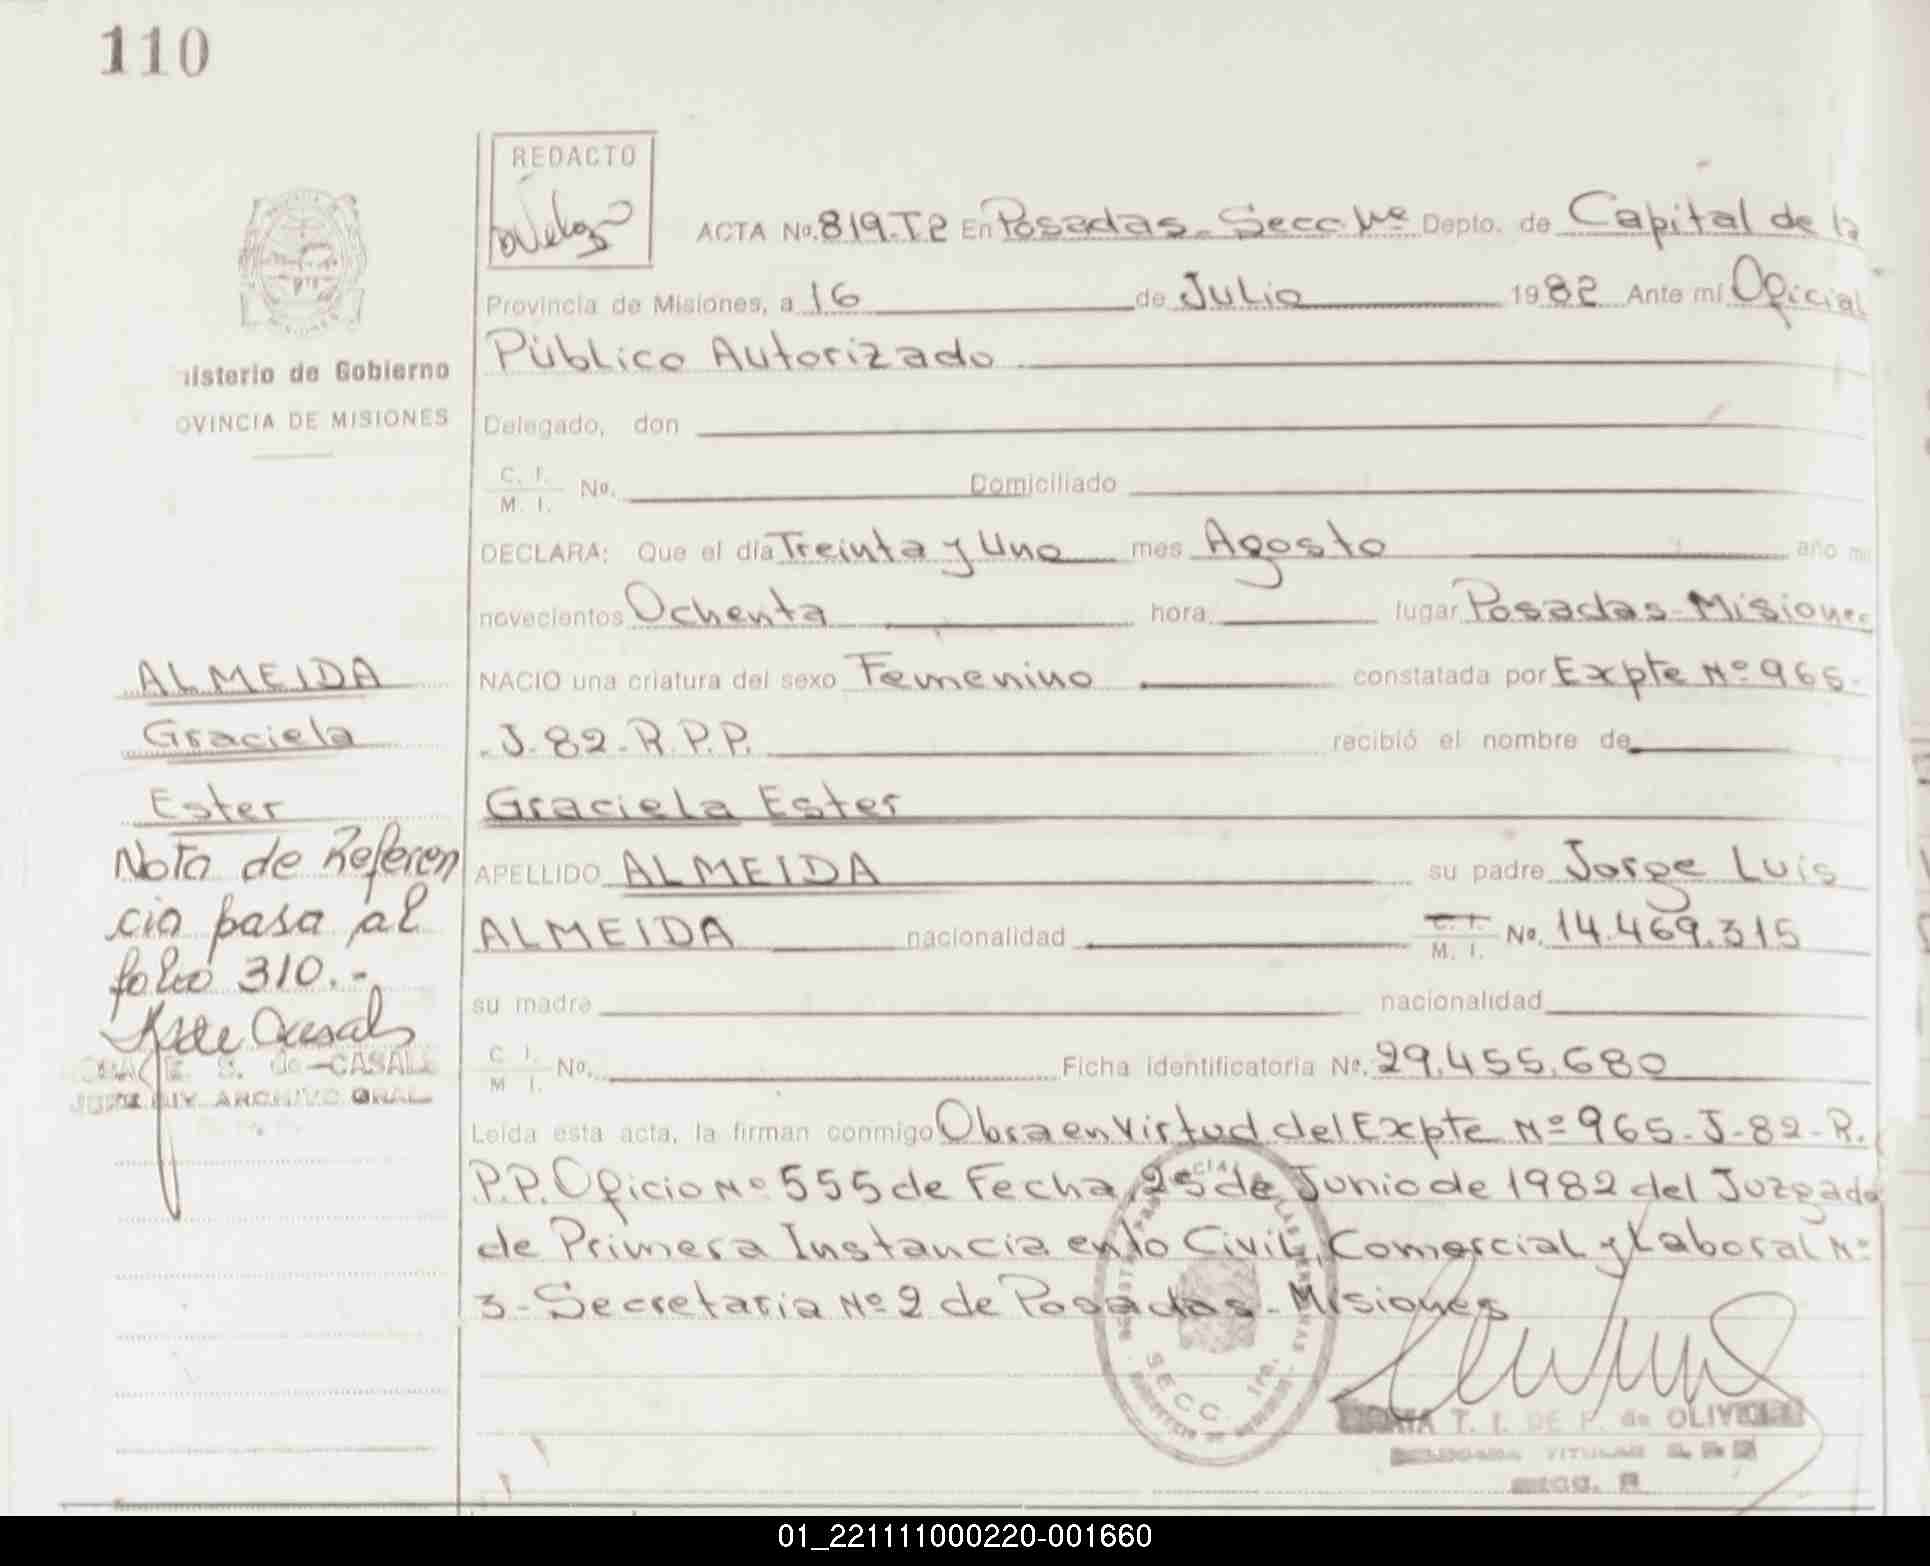 110
REDACTO
ACTA No. 819-T2 En Posadas-Secc. Depto. de Capital de la
Provincia de Misiones, a 16 de Julio 1982 Ante mí Oficial
Público Autorizado
isterio de Gobierno
OVINCIA DE MISIONES
Delegado, don
C. I.
M. I. No. Domiciliado
DECLARA: Que el día Treinta y Uno mes Agosto año mi
novecientos Ochenta hora lugar Posadas-Misiones
ALMEIDA
NACIO una criatura del sexo Femenino constatada por Expte Nº 965-
Graciela
J-82-R.P.P. recibió el nombre de
Ester
Graciela Ester
Nota de Referen
cia pasa al
folio 310.-
APELLIDO ALMEIDA su padre Jorge Luis
ALMEIDA nacionalidad C. I.
M. I. No. 14.469.315
su madre nacionalidad
C. I.
M. I. No. Ficha identificatoria No. 29.455.680
E. S. de CASALS
ARCHIVO GRAL
Leída esta acta, la firman conmigo Obra en Virtud del Expte Nº 965-J-82-R.
P.P. Oficio Nº 555 de Fecha, 25 de Junio de 1982 del Juzgado
de Primera Instancia en lo Civil, Comercial y Laboral Nº
3-Secretaria Nº 2 de Posadas-Misiones
SECC. 1ra.
T. I. DE F. de OLIVEIRA
TITULAR
01_221111000220-001660